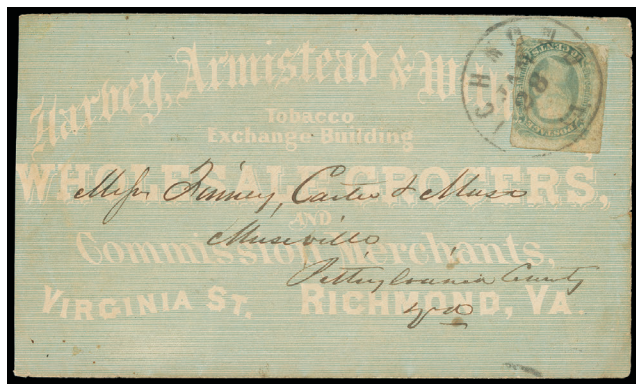 Harvey, Armistead & W
Tobacco
Exchange Building
WHOLESALE GROCERS,
AND
Commission Merchants,
VIRGINIA ST. RICHMOND, VA.
Messrs Finney, Carter & Muse
Museville
Pittsylvania County
Va
RICHMOND
JAN
28
POSTAGE
CENTS